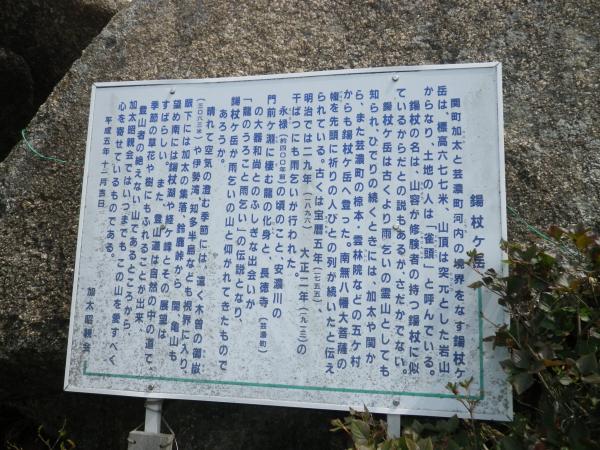 錫杖ヶ岳
関町加太と芸濃町河内の境界をなす錫杖ヶ
岳は、標高六七七米、山頂は突兀とした岩山
からなり、土地の人は「雀頭」と呼んでいる。
錫杖の名は、山容が修験者の持つ錫杖に似
ているからだとの説もあるが、さだかでない。
錫杖ケ岳は古くより雨乞いの霊山としても
知られ、ひでりの続くときには、加太や関か
ら、また芸濃町の椋本、雲林院などの五ヶ村
からも錫杖ヶ岳へ登った。南無八幡大菩薩の
幟を先頭に祈りの人びとの列が続いたと伝え
られている。古くは宝暦五年(一七五五)、
明治では二十九年(一八九六) 大正二年(一九一三)の
干ばつにも雨乞いが行われた。
永禄(約四〇〇年前)の頃のこと、安濃川の
門前ヶ淵に棲む龍の化身と、長徳寺(芸濃町)
の大器和尚とのふしぎな出会いが
「龍のうろこと雨乞い」の伝説となり、
錫杖ケ岳が雨乞いの山と仰がれてきたもので
あろうか。
晴れて空気の澄む季節には、遠く木曽の御嶽
(三〇六三米)や伊勢湾、知多半島なども視界に入り、
眼下には加太の集落、鈴鹿峠から 関、亀山も
望め南には錫杖湖や経ヶ峰とその展望は
すばらしい。また、登山道は自然の中の道で、
季節の草花や樹にもふれることが出来、
登山者の絶えない山であるところから、
加太昭親会ではいつまでも この山を愛すべく
心を寄せているものである。
平成五年十二月吉日
加太昭親会